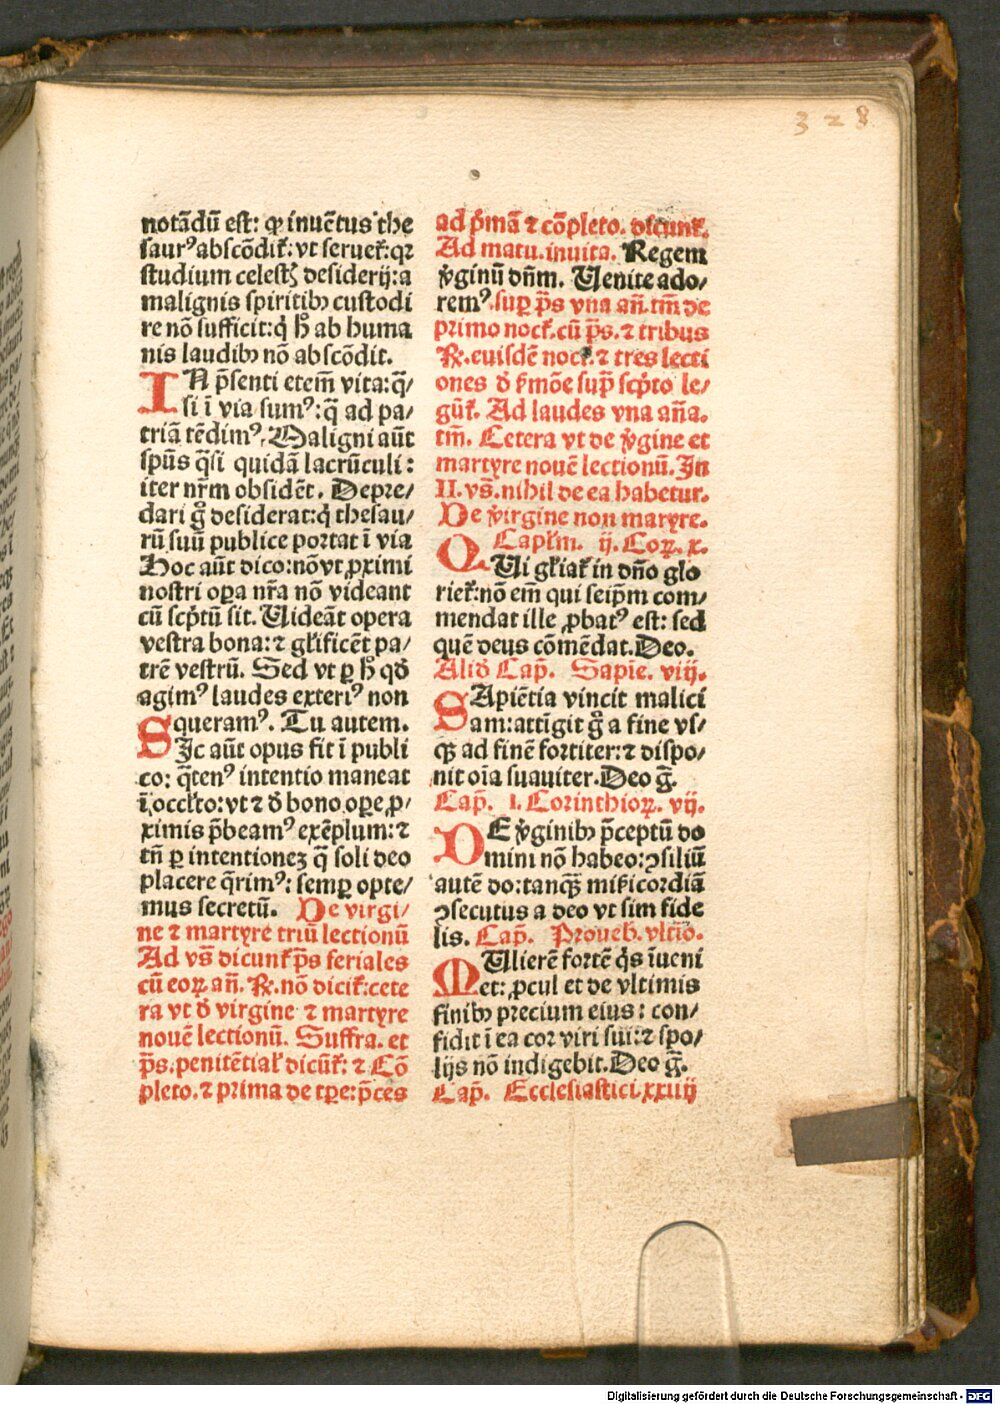 328
notādū est: ꝙ inuētus the
saurꝰ abscōdit᷑: vt seruet᷑: qꝛ
studium celestꝭ desiderij: a
malignis spiritibꝰ custodi
re nō sufficit: q̇ hͦ ab huma
nis laudibꝰ nō abscōdit.
IN p̄senti etem̄ vita: q̄/
si ī via sumꝰ: q̄ ad pa/
triā tēdimꝰ. Maligni aūt
spūs q̄si quidā latrūculi:
iter nr̄m obsidēt. Depre/
dari gͦ desiderat: q̇ thesau/
rū suū publice portat ī via
Hoc aūt dico: nō vt ꝓximi
nostri oꝑa nr̄a nō videant
cū scp̄tū sit. Uideāt opera
vestra bona: ⁊ gl̄ificēt pa/
trē vestrū. Sed vt ꝑ hͦ qd̄
agimꝰ laudes exteriꝰ non
queramꝰ. Tu autem.
SJc aūt opus fit ī publi
co: q̄tenꝰ intentio maneat
ī occl̄to: vt ⁊ đ bono oꝑe ꝓ/
ximis p̄beamꝰ exēplum: ⁊
tn̄ ꝑ intentionez q̄ soli deo
placere q̄rimꝰ: semꝑ opte/
mus secretū. De virgi/
ne ⁊ martyre triū lectionū
Ad vs̄ dicunt᷑ ps̄ feriales
cū eoꝝ an̄. ℟. nō dicit᷑: cete
ra vt đ virgine ⁊ martyre
nouē lectionū. Suffra. et
ps̄. penitētial̄ dicūt᷑: ⁊ Cō
pleto. ⁊ prima de tꝑe: p̄ces
ad p̄mā ⁊ cōpleto. dicunt᷑.
Ad matu. inuita. Regem
v̇ginū dn̄m. Uenite ado/
remꝰ. suꝑ ps̄ vna an̄. tm̄ de
primo noct᷑. cū ps̄. ⁊ tribus
℟. eiusdē noct᷑. ⁊ tres lecti
ones đ s̄mōe sup̄ scp̄to le/
gūt᷑. Ad laudes vna an̄a.
tm̄. Cetera vt de v̇gine et
martyre nouē lectionū. Jn
II. vs̄. nihil de ea habetur.
De v̇irgine non martyre.
Capl̄m. ij. Coꝝ. x.
QUi gl̄iat᷑ in dn̄o glo
riet᷑: nō em̄ qui seip̄m com/
mendat ille ꝓbatꝰ est: sed
quē deus cōmēdat. Deo.
Aliđ Cap̄. Sapie. viij.
SApiētia vincit malici
am: attīgit gͦ a fine vs/
qꝫ ad finē fortiter: ⁊ dispo/
nit oīa suauiter. Deo ḡ.
Cap̄. i. Corinthioꝝ. vij.
DE v̇ginibꝰ p̄ceptū do
mini nō habeo: ↄsiliū
autē do: tanqꝫ mīs̄icordiā
ↄsecutus a deo vt sim fide
lis. Cap̄. Proueb. vltiō.
MUlierē fortē q̇s īueni
et: ꝓcul et de vltimis
finibꝰ precium eius: con/
fidit ī ea cor viri sui: ⁊ spo/
lijs nō indigebit. Deo ḡ.
Cap̄. Ecclesiastici. xxiiij
Digitalisierung gefördert durch die Deutsche Forschungsgemeinschaft - DFG